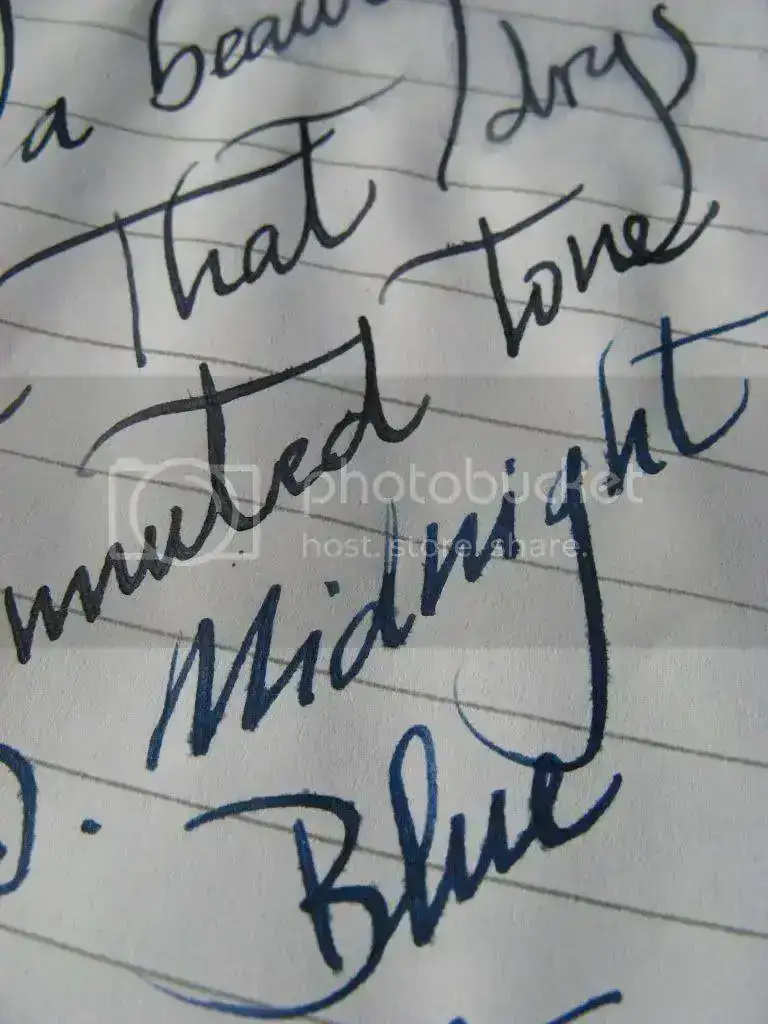 a beau
drys
That
tone
muted
Midnight
Blue
photobucket
host. store. share.